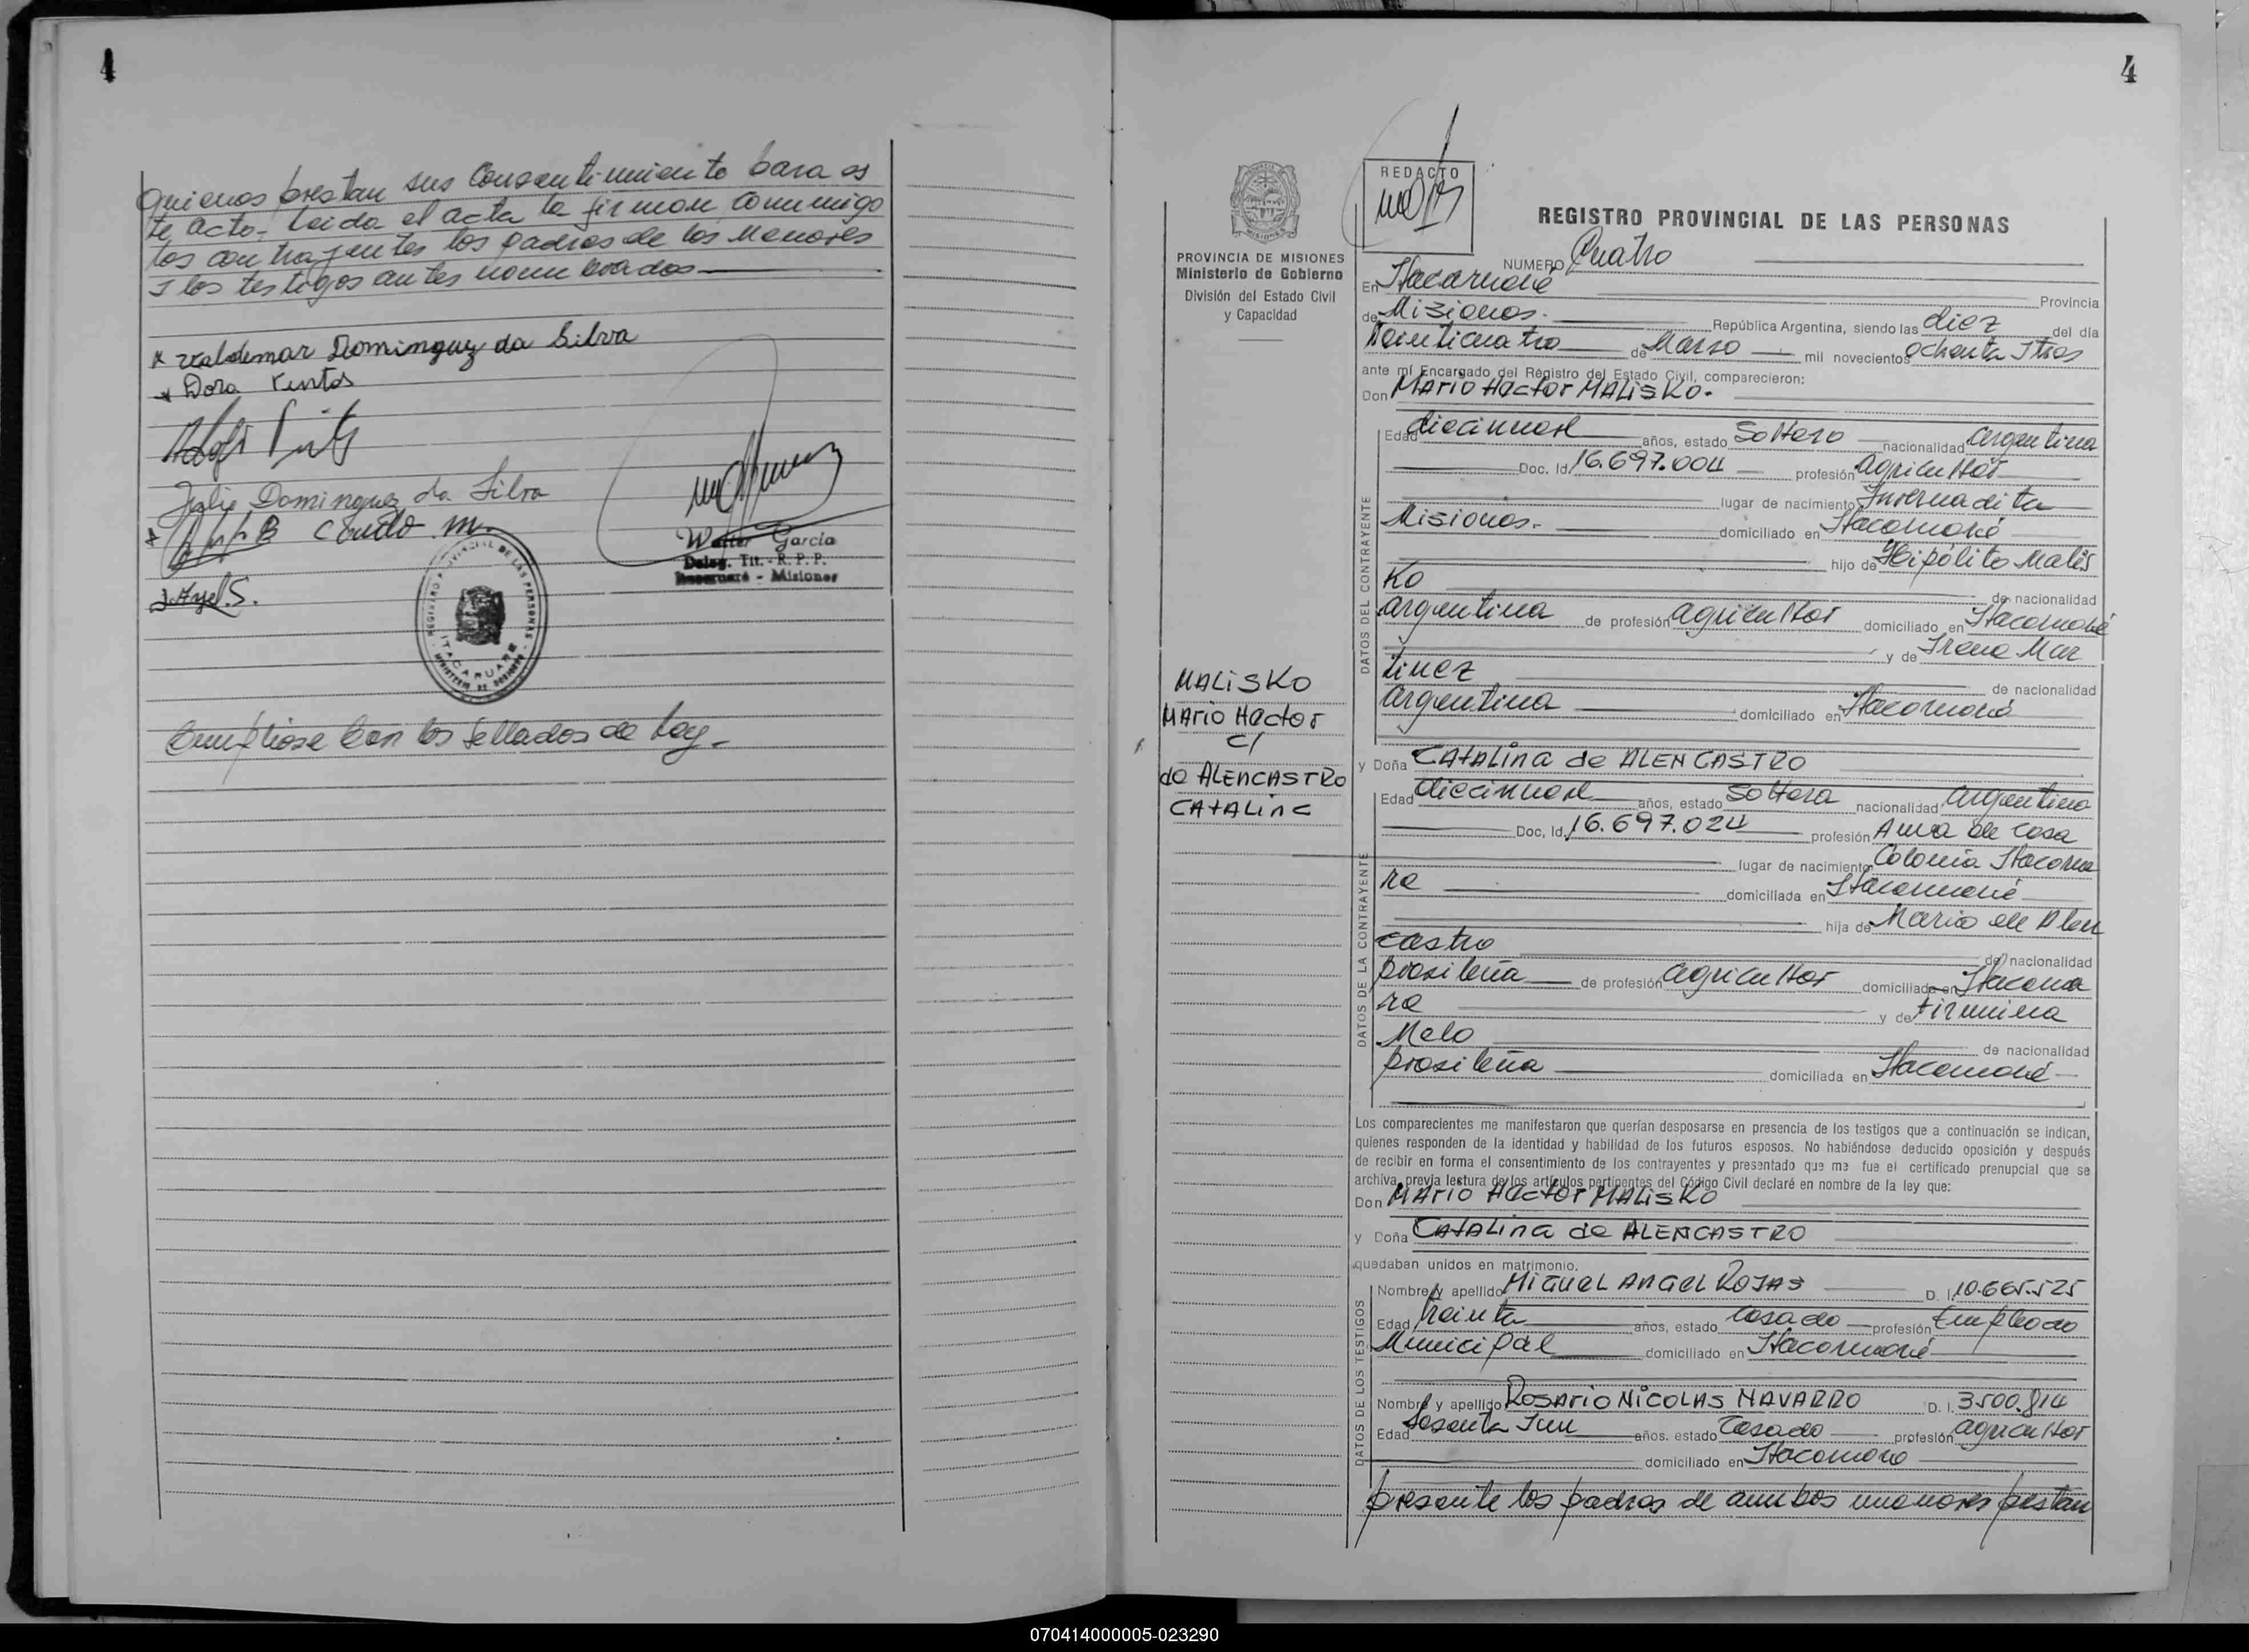 4
Quienes prestan sus Consentimiento para es
te acto- Leida el acta la firman Conmmigo
los contrayentes los padres de los Menores
I los testigos antes nombrados
x Valdemar Dominguez da Silva
x Dora Pintos
Julio Dominguez da Silva
Walter García
Deleg. Tit. - R. P. P.
Itacaruaré - Misiones
REGISTRO PROVINCIAL DE LAS PERSONAS
ITACARUARE
MINISTERIO DE GOBIERNO
Cumpliose Con los Sellados de Ley-
4
PROVINCIA DE MISIONES
Ministerio de Gobierno
División del Estado Civil
y Capacidad
MALISKO
Mario Hector
C/
de ALENCASTRO
CATALINA
REDACTO
REGISTRO PROVINCIAL DE LAS PERSONAS
NUMERO Cuatro
En Itacaruaré Provincia
de Misiones.- República Argentina, siendo las diez del día
Veinticuatro de Marzo mil novecientos ochenta I tres
ante mí Encargado del Registro del Estado Civil, comparecieron:
Don MARIO HECTOR MALISKO.
DATOS DEL CONTRAYENTE
Edad diecinueve años, estado Soltero nacionalidad argentina
Doc. Id. 16.697.004 profesión agricultor
lugar de nacimiento Invernadita
Misiones.- domiciliado en Itacaruaré
hijo de Hipólito Malis
ko de nacionalidad
argentina de profesión agricultor domiciliado en Itacaruaré
y de Irene Mar
tinez de nacionalidad
argentina domiciliado en Itacaruaré
y Doña CATALINA de ALENCASTRO
DATOS DE LA CONTRAYENTE
Edad diecinueve años, estado Soltera nacionalidad argentina
Doc. Id. 16.697.024 profesión Ama de Casa
lugar de nacimiento Colonia Itacarua
re domiciliada en Itacaruaré
hija de Mario de Alen
castro de nacionalidad
brasileña de profesión agricultor domiciliado en Itacarua
re y de Firmina
Melo de nacionalidad
brasileña domiciliada en Itacaruaré
Los comparecientes me manifestaron que querían desposarse en presencia de los testigos que a continuación se indican,
quienes responden de la identidad y habilidad de los futuros esposos. No habiéndose deducido oposición y después
de recibir en forma el consentimiento de los contrayentes y presentado que me fue el certificado prenupcial que se
archiva, previa lectura de los artículos pertinentes del Código Civil declaré en nombre de la ley que:
Don MARIO HECTOR MALISKO
y Doña CATALINA de ALENCASTRO
quedaban unidos en matrimonio.
DATOS DE LOS TESTIGOS
Nombre y apellido MIGUEL ANGEL ROJAS D. I. 10.665.525
Edad treinta años, estado Casado profesión Empleado
Municipal domiciliado en Itacaruaré
Nombre y apellido ROSARIO NICOLAS NAVARRO D. I. 3.500.814
Edad Sesenta I un años, estado Casado profesión agricultor
domiciliado en Itacaruaré
presente los padres de ambos menores prestan
070414000005-023290